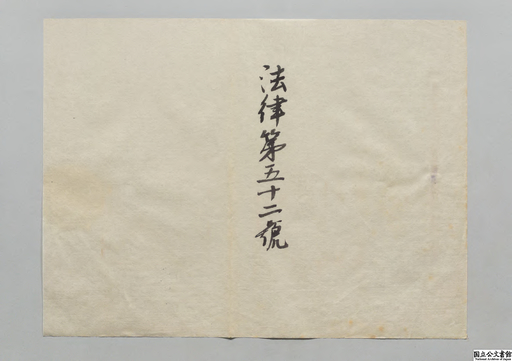 法律第五十二號
国立公文書館
National Archives of Japan